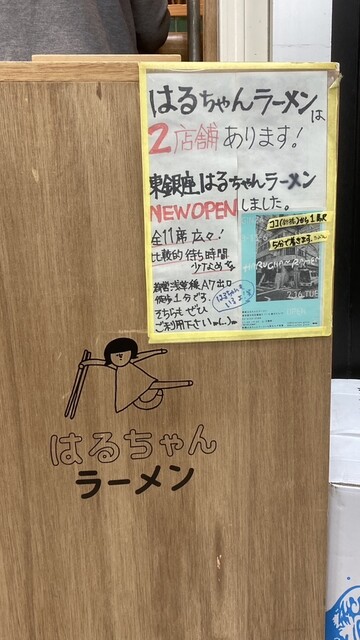 はるちゃんラーメンは
2店舗あります！
東銀座はるちゃんラーメン
NEW OPENしました。
全11席広々！
比較的待ち時間
少なめです
都営浅草線A7出口
徒歩1分です。
そちらもぜひ
ご利用下さい
ココ(新橋)から1駅
5分で着きます。
HARUCHAN RAMEN
2.16 TUE
OPEN
はるちゃん
ラーメン